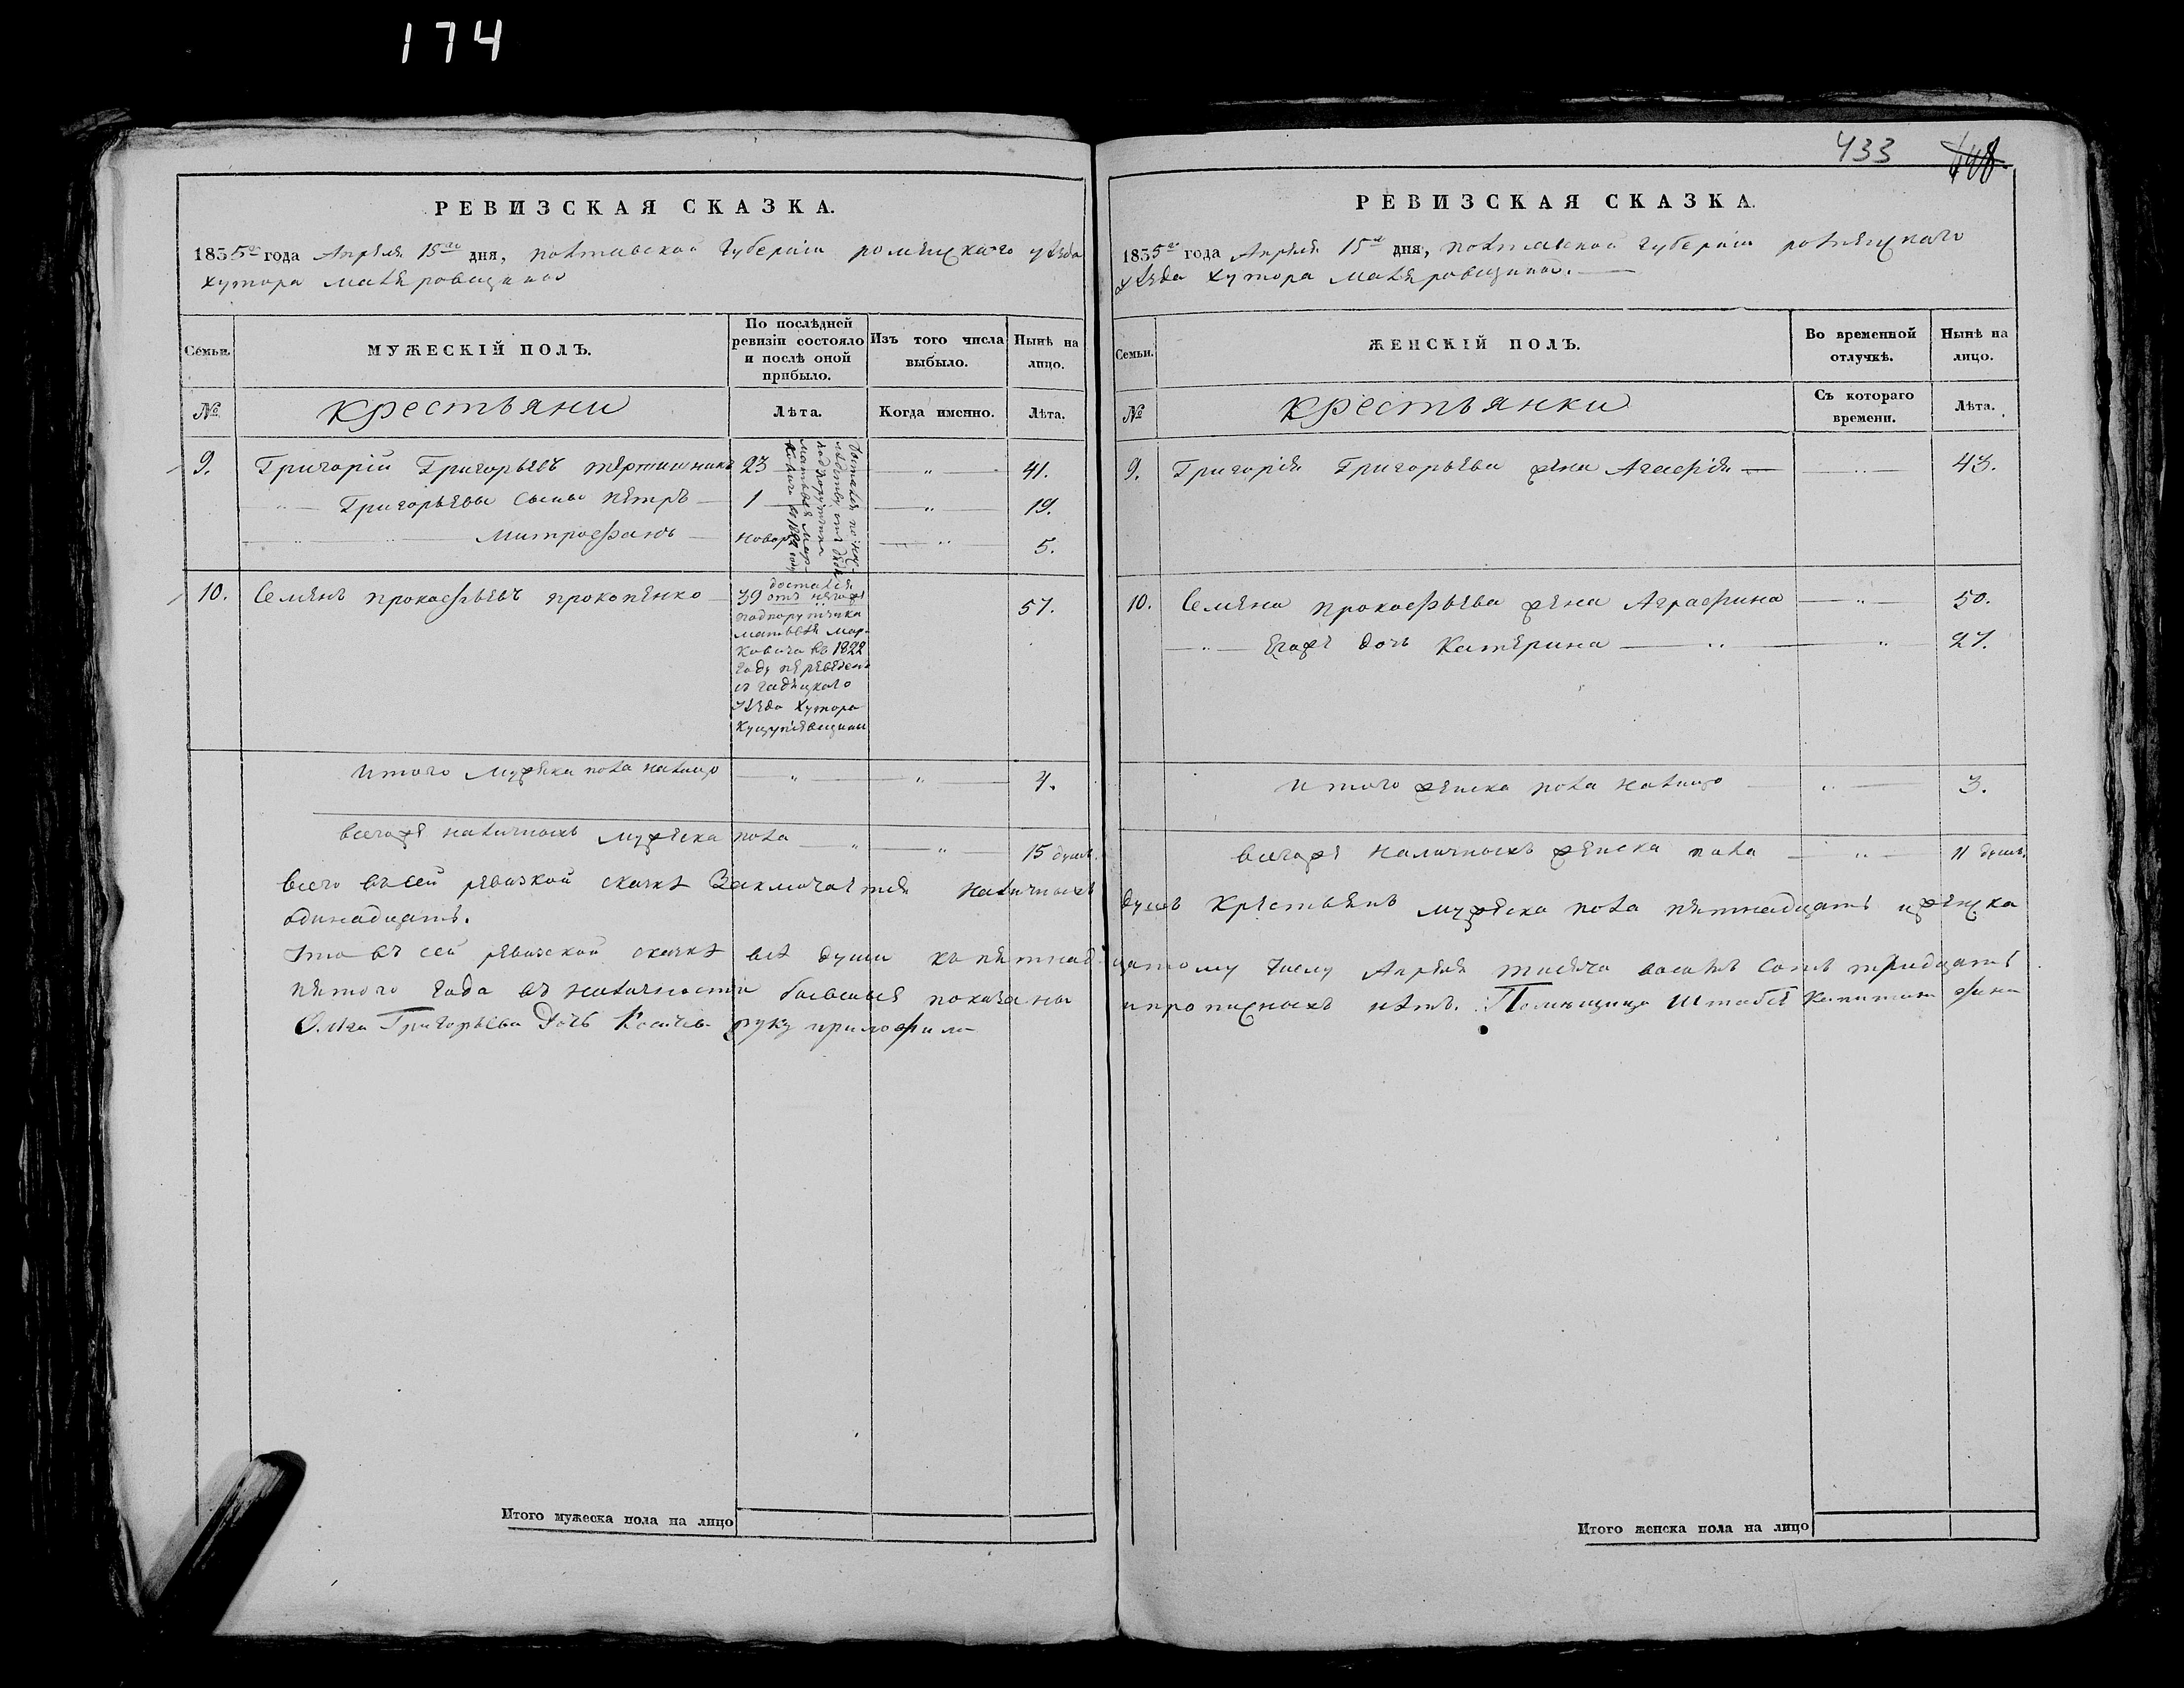 174
РЕВИЗСКАЯ СКАЗКА.
1835го года Апреля 15го дня, полтавской губернии роменскаго уезда
хутора
Семьи.
МУЖЕСКІЙ ПОЛЪ.
По послѣдней ревизіи состояло и послѣ оной прибыло.
Изъ того числа выбыло.
Нынѣ на лицо.
№
крестьяни
Лѣта.
Когда именно.
Лѣта.
9. Григорій Григорьевъ 23 41.
Григорьевы сыны петръ 1 19.
митрофанъ новор 5.
10. Семенъ прокофьевъ прокопенко 39 57.
достался
отъ него же
подпоручика
матвея мар-
ковича въ 1822
году переведенъ
изъ гадяцкаго
уезда хутора
итого мужеска пола налицо 4.
всегоже наличныхъ мужеска пола 15 душъ.
всего въ сей ревизкой сказкѣ Заключается наличныхъ
одинадцать.
Что въ сей ревизской сказкѣ всѣ души къ пятнад-
пятого года въ наличности бывшыя показаны
Григорьева дочь руку приложила
Итого мужеска пола на лицо
433
РЕВИЗСКАЯ СКАЗКА.
1835го года Апреля 15го дня, полтавской губерніи роменскаго
уезда хутора
Семьи.
ЖЕНСКІЙ ПОЛЪ.
Во временной отлучкѣ.
Нынѣ на лицо.
№
крестьянки
Съ котораго времени.
Лѣта.
9. Григорія Григорьева жена Агафія 43.
10. Семена прокофьева жена Аграфина 50.
Егожъ дочь Катерина 27.
итого женска пола налицо 3.
всегоже наличныхъ женска пола 11 душъ.
душъ Крестьянъ мужеска пола пятнадцать и женска
цатому числу Апреля тысяча восемь сотъ тридцать
и прописныхъ нѣтъ. Помещица Штабсъ Капитана жена
Итого женска пола на лицо